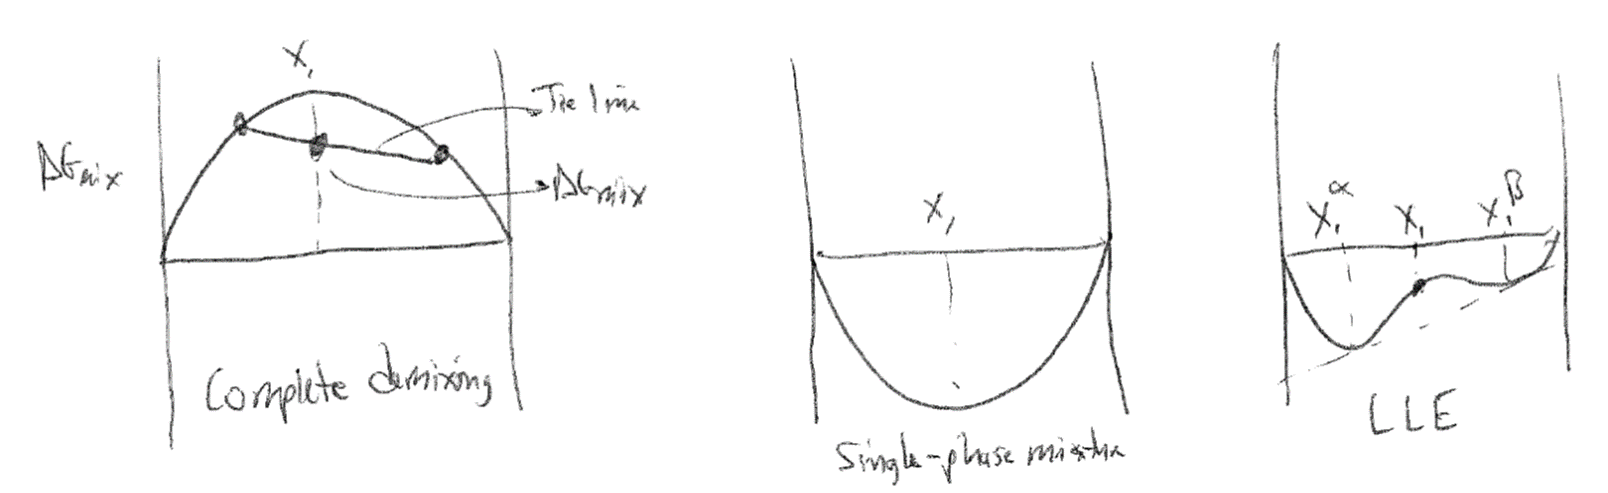 X₁
Tie line
ΔGmix
ΔGmix
Complete demixing
X₁
Single-phase mixture
X₁^α X₁ X₁^β
LLE